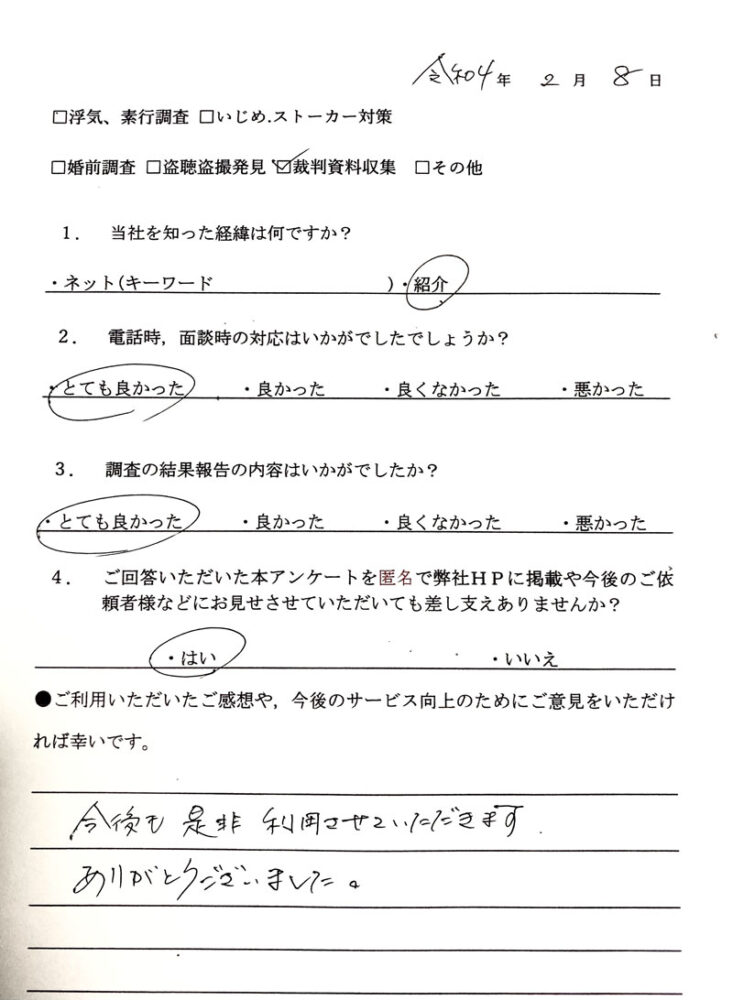 令和4年 2月 8日
□浮気、素行調査 □いじめ.ストーカー対策
□婚前調査 □盗聴盗撮発見 ☑裁判資料収集 □その他
1． 当社を知った経緯は何ですか？
・ネット(キーワード )・紹介
2． 電話時，面談時の対応はいかがでしたでしょうか？
・とても良かった ・良かった ・良くなかった ・悪かった
3． 調査の結果報告の内容はいかがでしたか？
・とても良かった ・良かった ・良くなかった ・悪かった
4． ご回答いただいた本アンケートを匿名で弊社ＨＰに掲載や今後のご依
頼者様などにお見せさせていただいても差し支えありませんか？
・はい ・いいえ
●ご利用いただいたご感想や，今後のサービス向上のためにご意見をいただけ
れば幸いです。
今後も是非利用させていただきます.
ありがとうございました。